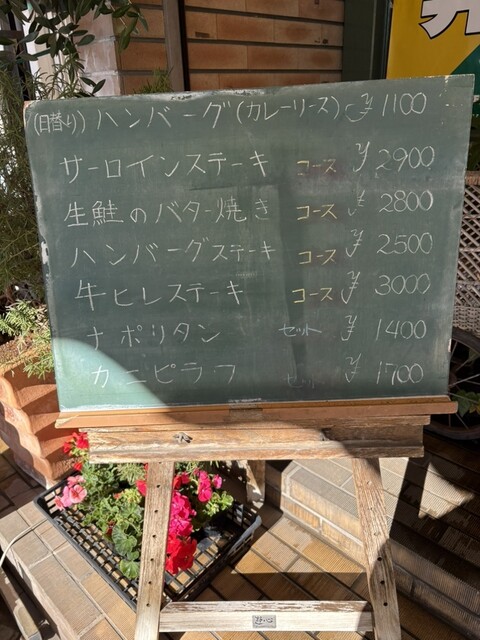 (日替り) ハンバーグ(カレーソース) ¥1100
サーロインステーキ コース ¥2900
生鮭のバター焼き コース ¥2800
ハンバーグステーキ コース ¥2500
牛ヒレステーキ コース ¥3000
ナポリタン セット ¥1400
カニピラフ セット ¥1700